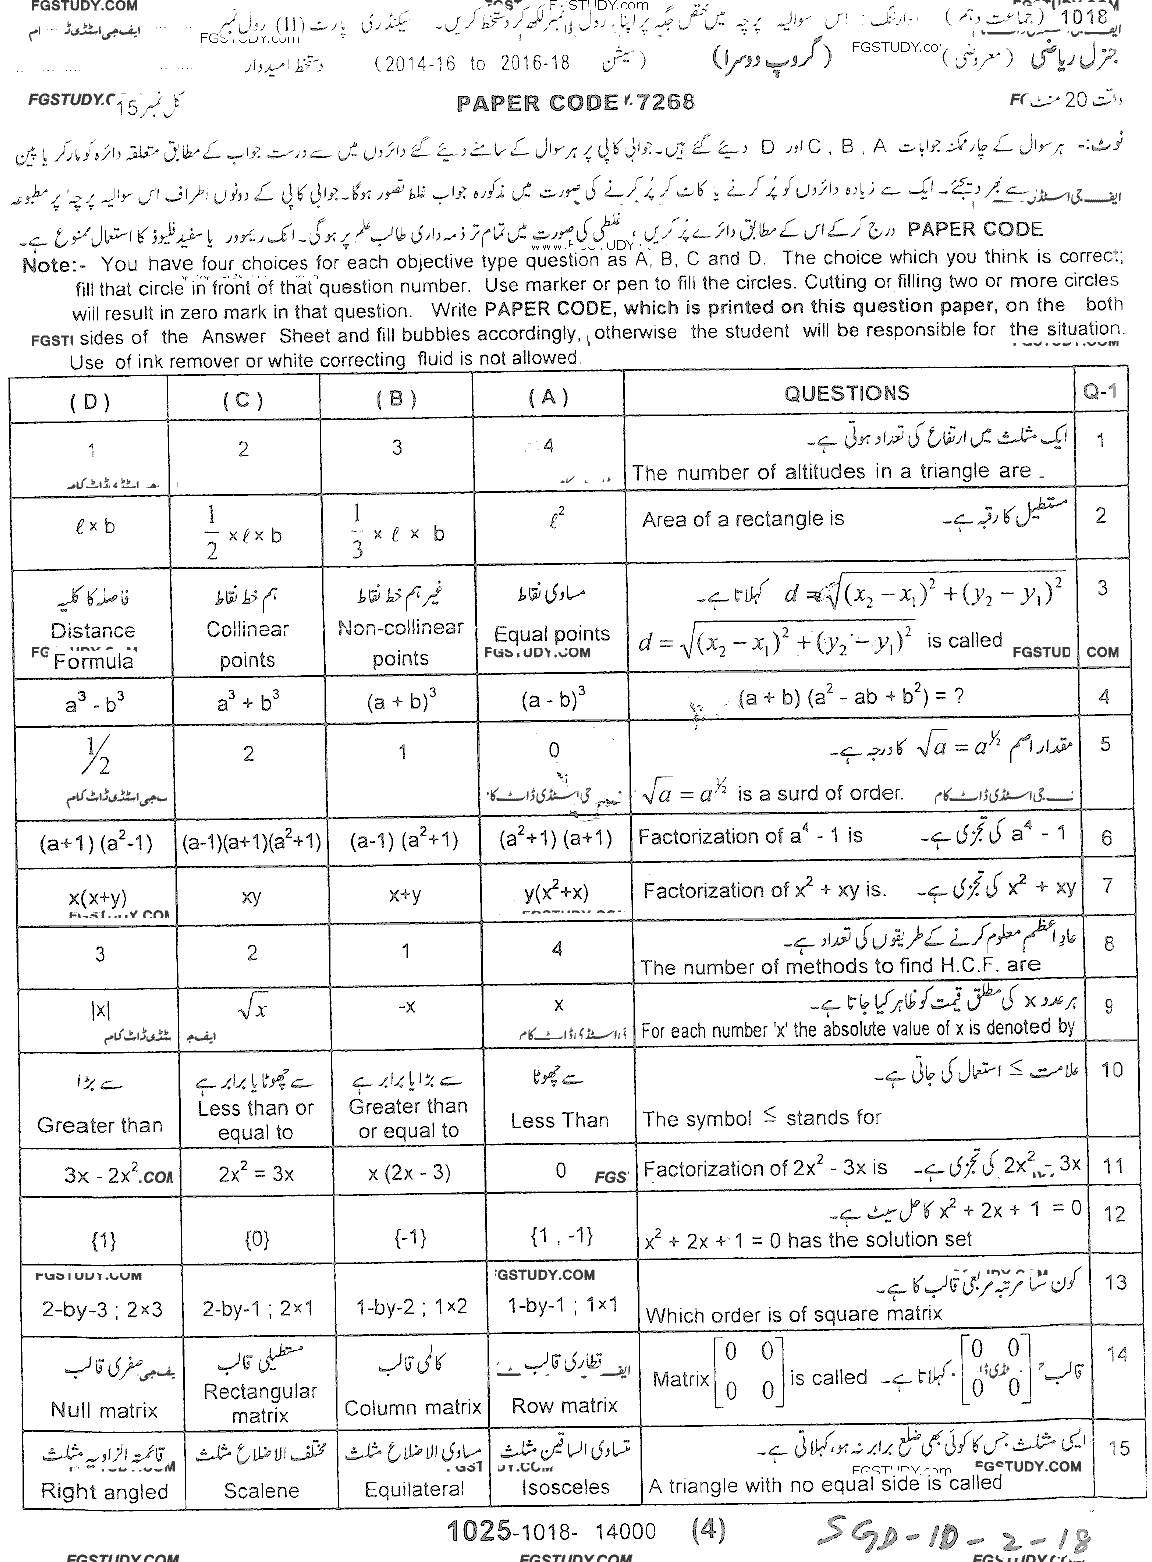 FGSTUDY.COM
1018 (جماعت دہم) وارننگ: اس سوالیہ پرچہ میں مختص جگہ پر اپنا رول نمبر لکھ کر دستخط کریں۔ سیکنڈری پارٹ (II) رول نمبر
FGSTUDY.COM
جنرل ریاضی (معروضی) (گروپ دوسرا) (سیشن 2014-16 to 2016-18) دستخط امیدوار
FGSTUDY.C کل نمبر 15 PAPER CODE 7268 وقت 20 منٹ
نوٹ:- ہر سوال کے چار ممکنہ جوابات A , B , C اور D دیئے گئے ہیں۔ جوابی کاپی پر ہر سوال کے سامنے دیئے گئے دائروں میں سے درست جواب کے مطابق متعلقہ دائرہ کو مارکر یا پین
سے بھر دیجئے۔ ایک سے زیادہ دائروں کو پُر کرنے یا کاٹ کر پُر کرنے کی صورت میں مذکورہ جواب غلط تصور ہوگا۔ جوابی کاپی کے دونوں اطراف اس سوالیہ پرچہ پر مطبوعہ
PAPER CODE درج کر کے اس کے مطابق دائرے پُر کریں، غلطی کی صورت میں تمام تر ذمہ داری طالب علم پر ہوگی۔ انک ریموور یا سفید فلیوڈ کا استعمال ممنوع ہے۔
Note:- You have four choices for each objective type question as A, B, C and D. The choice which you think is correct;
fill that circle in front of that question number. Use marker or pen to fill the circles. Cutting or filling two or more circles
will result in zero mark in that question. Write PAPER CODE, which is printed on this question paper, on the both
sides of the Answer Sheet and fill bubbles accordingly, otherwise the student will be responsible for the situation.
Use of ink remover or white correcting fluid is not allowed.
(D) (C) (B) (A) QUESTIONS Q-1
ایک مثلث میں ارتفاع کی تعداد ہوتی ہے۔
1 2 3 4 The number of altitudes in a triangle are 1
ℓ × b 1/2 × ℓ × b 1/3 × ℓ × b ℓ² Area of a rectangle is مستطیل کا رقبہ ہے۔ 2
فاصلہ کا کلیہ ہم خط نقاط غیر ہم خط نقاط مساوی نقاط d = √(x₂ − x₁)² + (y₂ − y₁)² کہلاتا ہے۔ 3
Distance Formula Collinear points Non-collinear points Equal points d = √(x₂ − x₁)² + (y₂ − y₁)² is called
FGSTUDY.COM FGSTUD COM
a³ - b³ a³ + b³ (a + b)³ (a - b)³ (a + b) (a² - ab + b²) = ? 4
مقدار اصم √a = a^½ کا درجہ ہے۔
1/2 2 1 0 √a = a^½ is a surd of order. 5
(a+1) (a²-1) (a-1)(a+1)(a²+1) (a-1) (a²+1) (a²+1) (a+1) Factorization of a⁴ - 1 is a⁴ - 1 کی تجزی ہے۔ 6
x(x+y) xy x+y y(x²+x) Factorization of x² + xy is. x² + xy کی تجزی ہے۔ 7
عاد اعظم معلوم کرنے کے طریقوں کی تعداد ہے۔
3 2 1 4 The number of methods to find H.C.F. are 8
ہر عدد x کی مطلق قیمت کو ظاہر کیا جاتا ہے۔
|x| √x -x x For each number 'x' the absolute value of x is denoted by 9
سے بڑا سے چھوٹا یا برابر ہے سے بڑا یا برابر ہے سے چھوٹا علامت ≤ استعمال کی جاتی ہے۔ 10
Greater than Less than or equal to Greater than or equal to Less Than The symbol ≤ stands for
3x - 2x² 2x² = 3x x (2x - 3) 0 Factorization of 2x² - 3x is 2x² - 3x کی تجزی ہے۔ 11
x² + 2x + 1 = 0 کا حل سیٹ ہے۔
{1} {0} {-1} {1 , -1} x² + 2x + 1 = 0 has the solution set 12
FGSTUDY.COM GSTUDY.COM
کون سا مرتبہ مربعی قالب کا ہے۔
2-by-3 ; 2×3 2-by-1 ; 2×1 1-by-2 ; 1×2 1-by-1 ; 1×1 Which order is of square matrix 13
صفری قالب مستطیلی قالب کالمی قالب قطاری قالب قالب [0 0 0 0] کہلاتا ہے۔ 14
Null matrix Rectangular matrix Column matrix Row matrix Matrix [0 0 0 0] is called
قائمتہ الزاویہ مثلث مختلف الاضلاع مثلث مساوی الاضلاع مثلث متساوی الساقین مثلث ایسی مثلث جس کا کوئی بھی ضلع برابر نہ ہو، کہلاتی ہے۔ 15
FGSTUDY.com FGSTUDY.COM
Right angled Scalene Equilateral Isosceles A triangle with no equal side is called
1025-1018- 14000 (4) SGD-10-2-18
FGSTUDY.COM FGSTUDY.COM